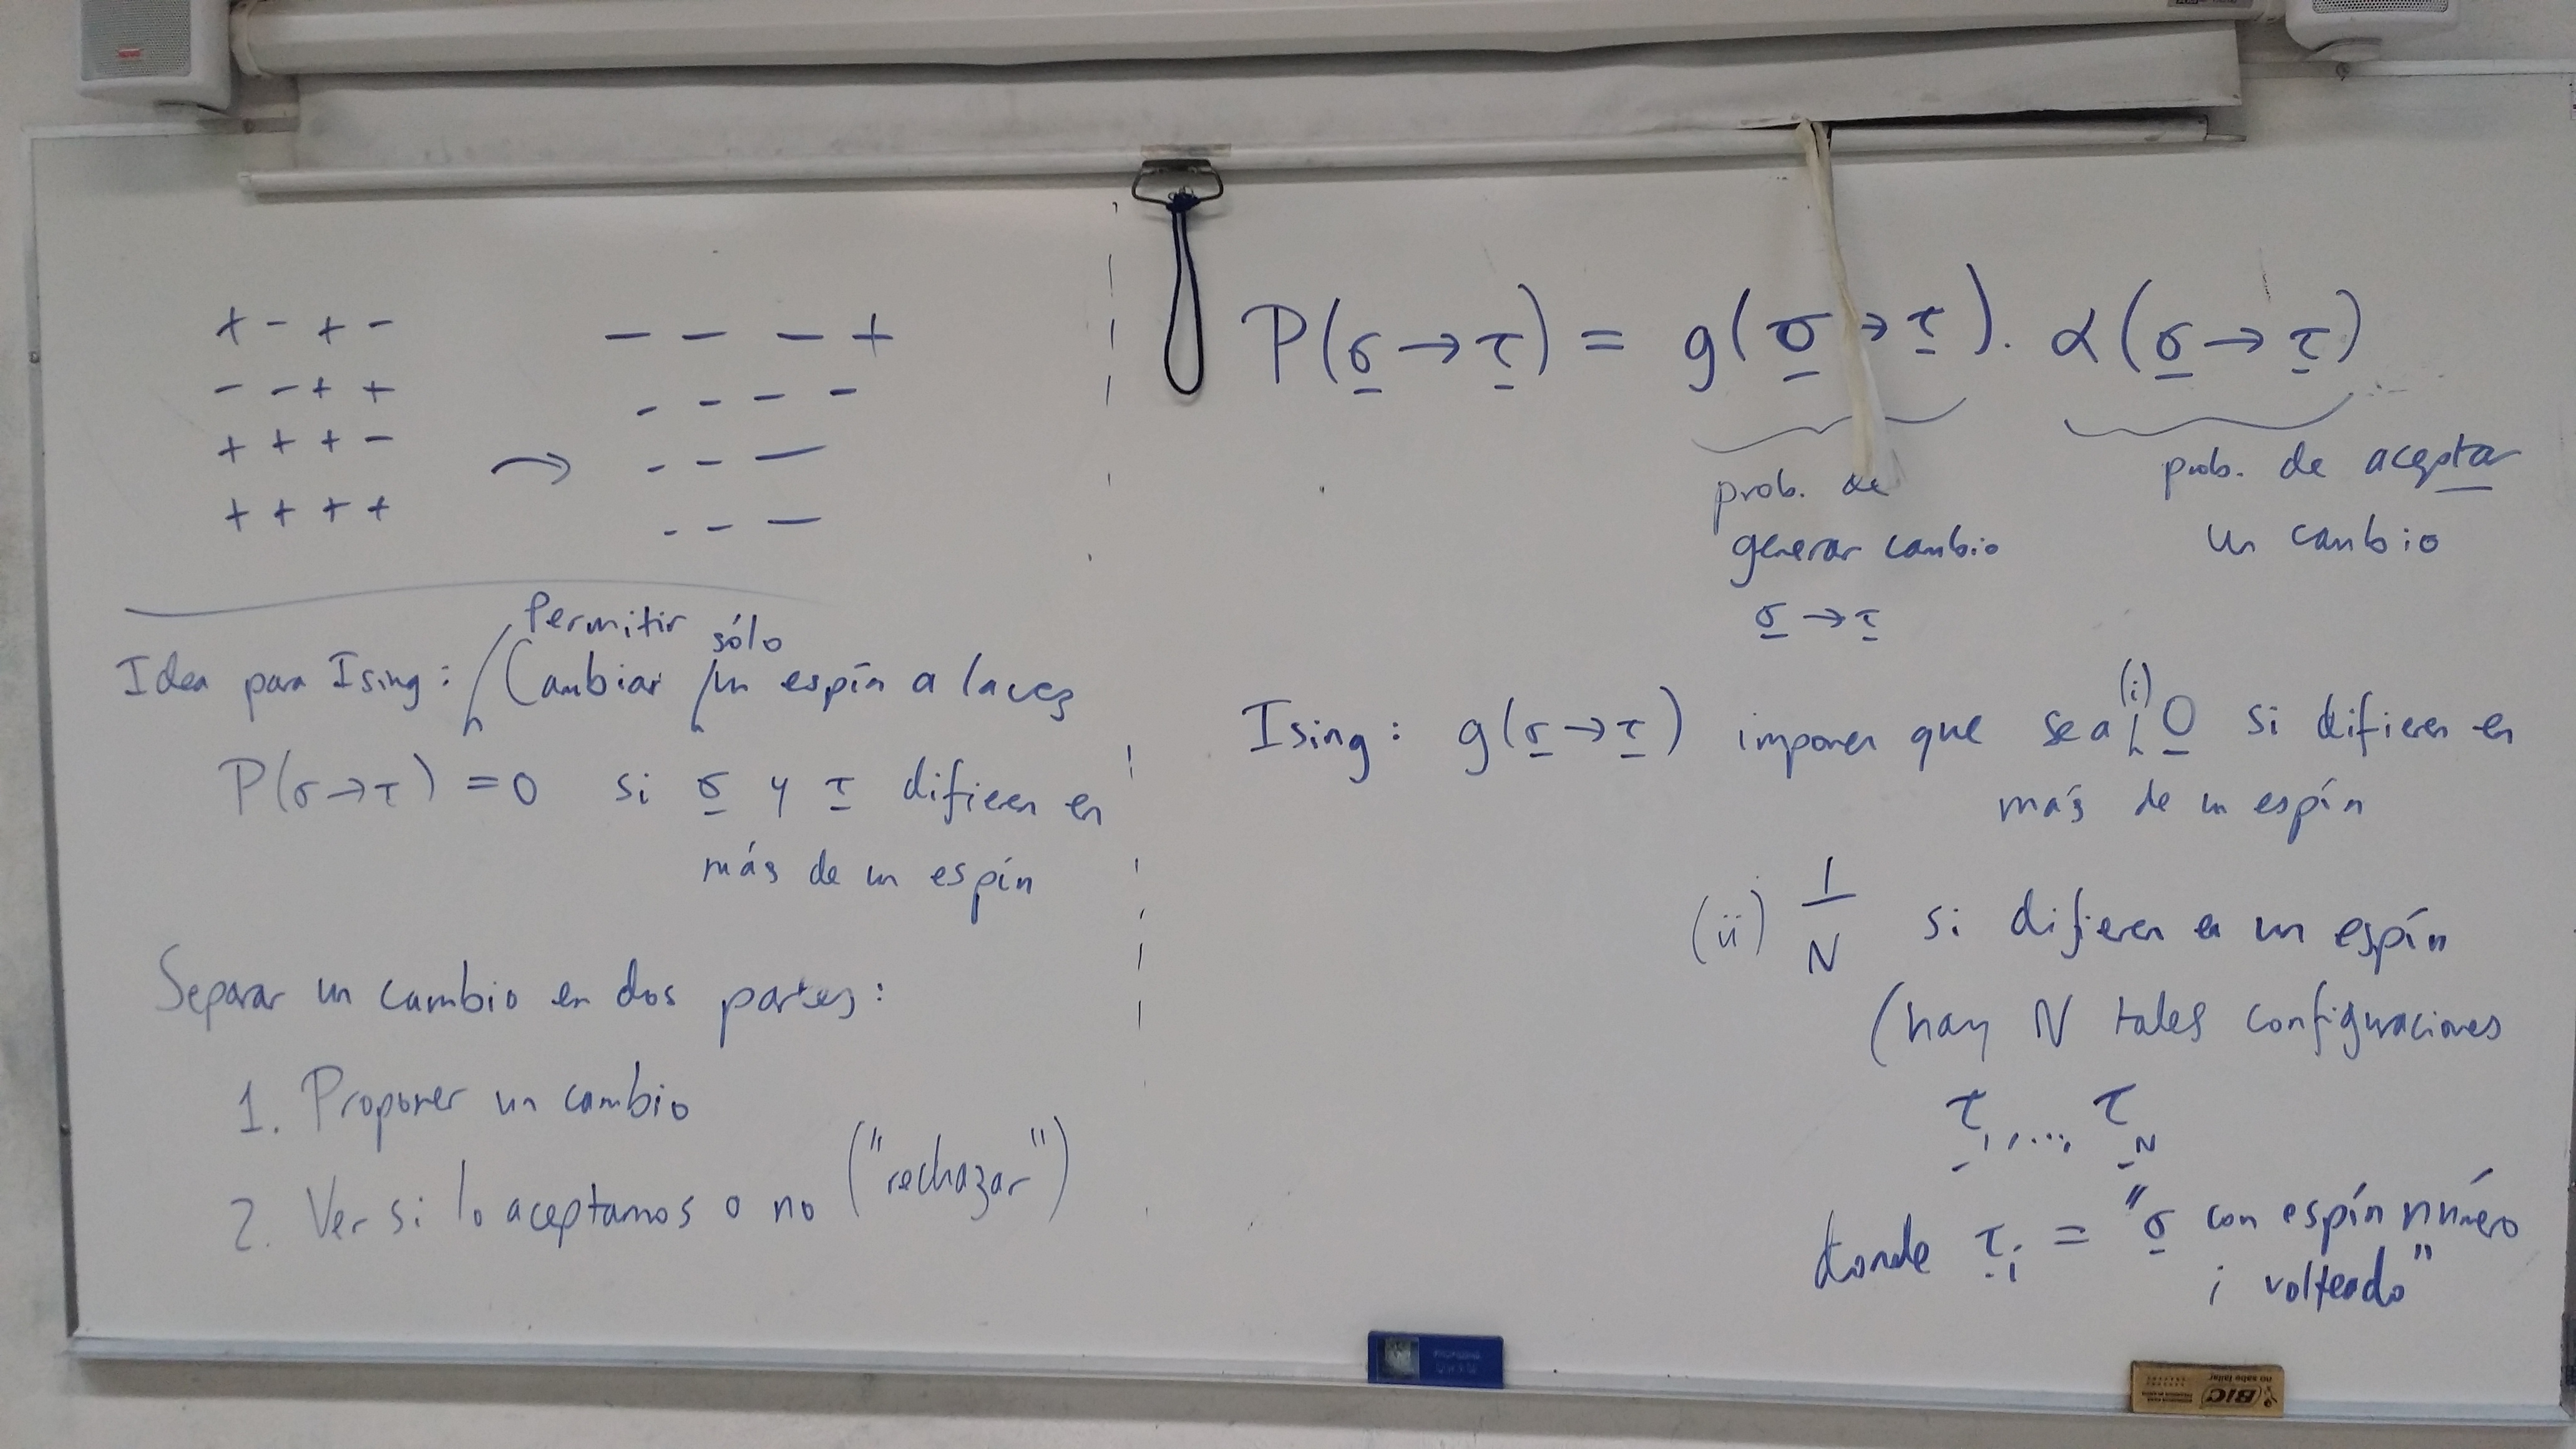 + - + -
- - + +
+ + + -
+ + + +
→
- - - +
- - - -
- - —
- - —
Permitir sólo
Idea para Ising: Cambiar un espín a la vez
P(σ→τ) = 0 si σ y τ difieren en
más de un espín
Separar un cambio en dos partes:
1. Proponer un cambio
2. Ver si lo aceptamos o no ("rechazar")
P(σ→τ) = g(σ→τ). α(σ→τ)
prob. de
generar cambio
σ→τ
prob. de aceptar
un cambio
Ising: g(σ→τ) imponer que sea (i) 0 si difieren en
más de un espín
(ii) 1/N si difieren en un espín
(hay N tales configuraciones
τ₁,..., τ_N
donde τᵢ = "σ con espín número
i volteado"
BIC
no sabe fallar